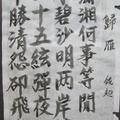 歸雁 錢起
瀟湘何事等閒
碧沙明兩岸
十五絃彈夜
勝清怨卻飛